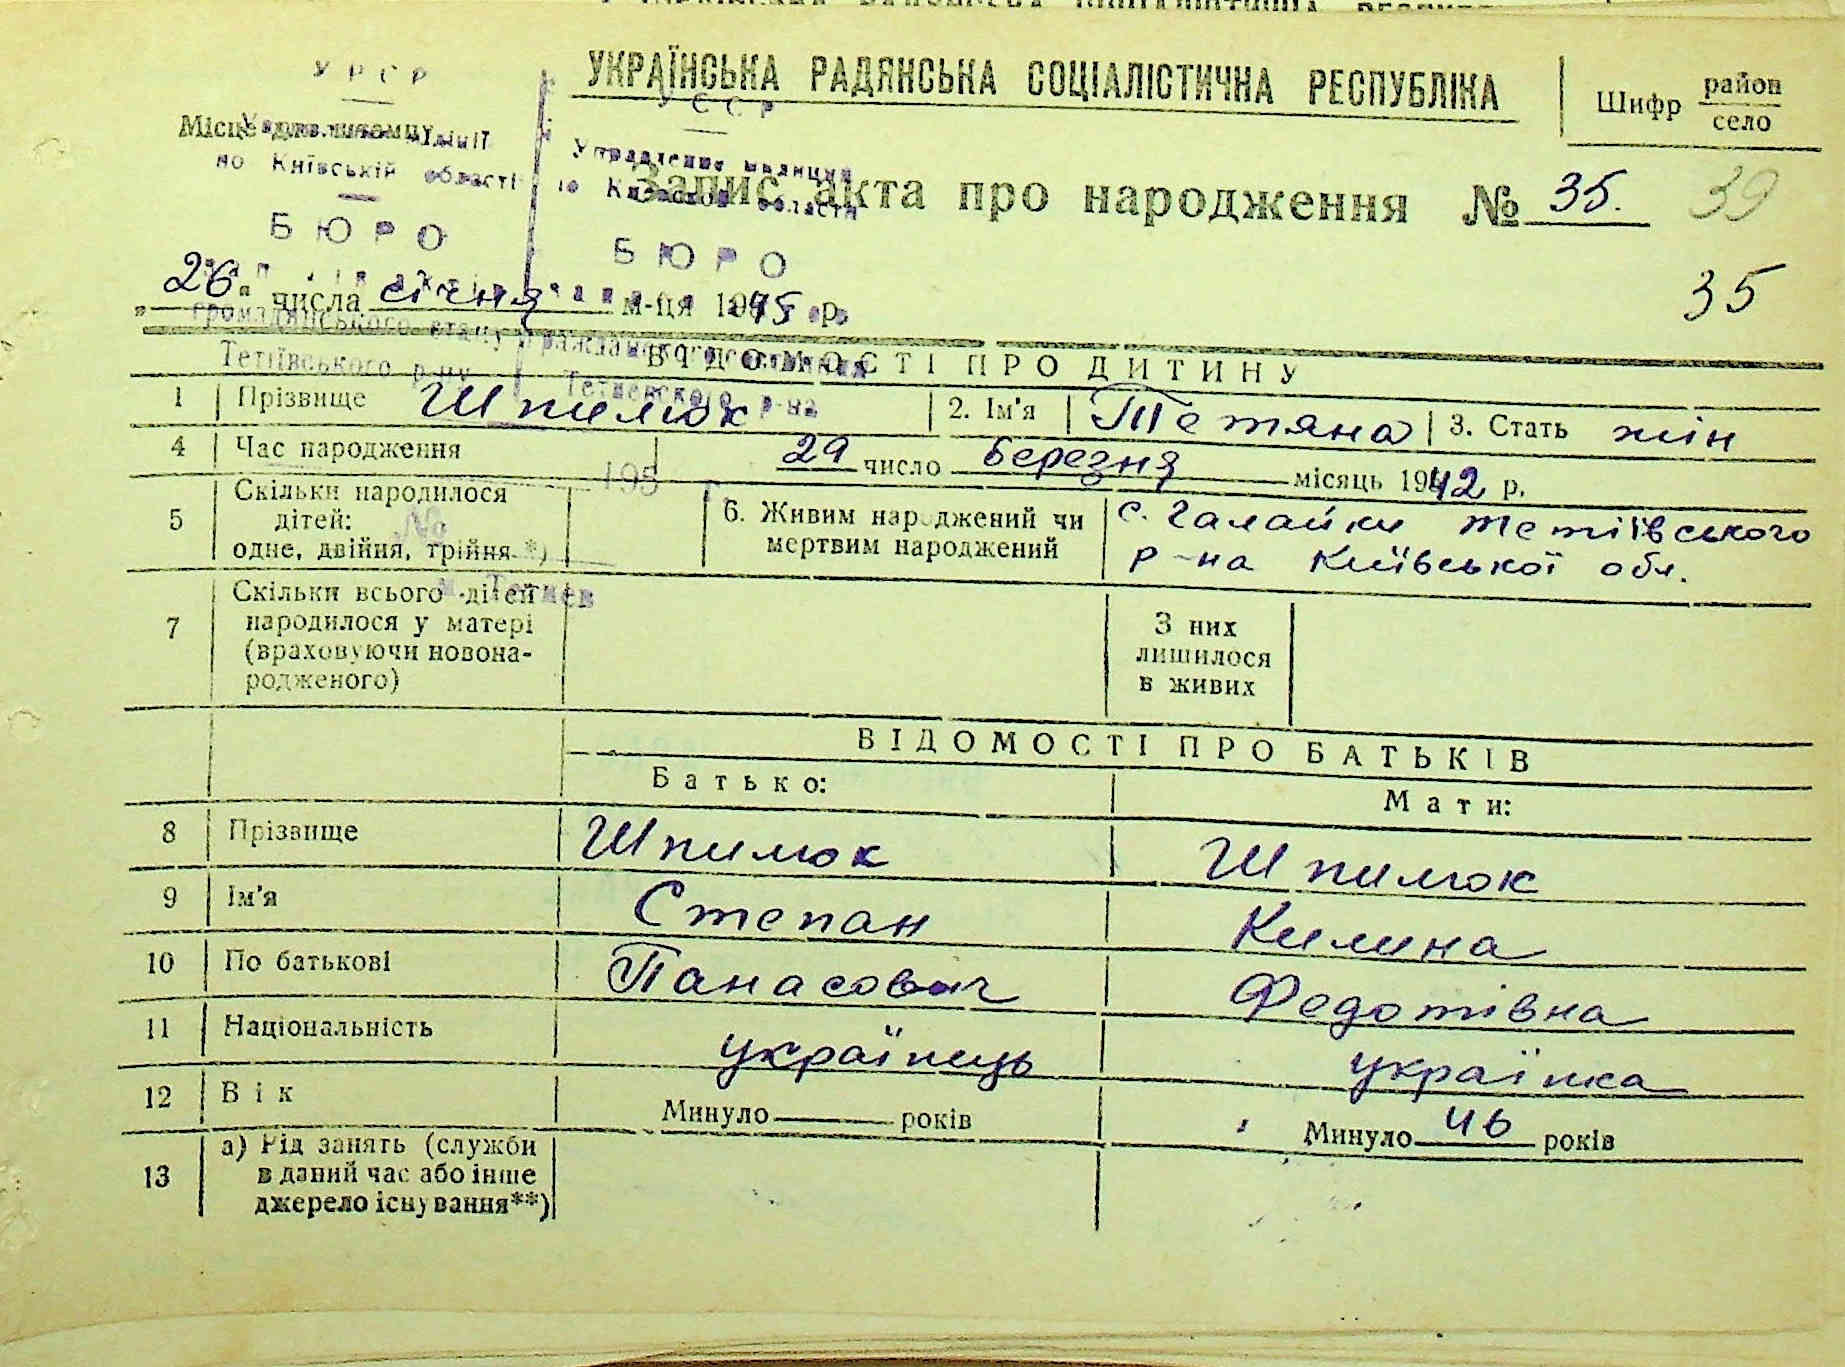 УКРАЇНСЬКА РАДЯНСЬКА СОЦІАЛІСТИЧНА РЕСПУБЛІКА
Шифр район
село
УРСР
УССР
Місце для штампу
Управління міліції
по Київській області
Управление милиции
по Киевской области
БЮРО
БЮРО
Запис акта про народження № 35.
39
35
„26" числа січня м-ця 1945 р.
громадянського стану
гражданского состояния
Тетіївського р-ну
Тетиевского р-на
ВІДОМОСТІ ПРО ДИТИНУ
1 Прізвище Шпилюк 2. Ім'я Тетяна 3. Стать жін
4 Час народження 29 число березня місяць 1942 р.
195
5 Скільки народилося
дітей:
одне, двійня, трійня *)
№
6. Живим народжений чи
мертвим народжений
с. Галайки Тетіївського
р-на Київської обл.
м. Тетиев
7 Скільки всього дітей
народилося у матері
(враховуючи новона-
родженого)
З них
лишилося
в живих
ВІДОМОСТІ ПРО БАТЬКІВ
Батько: Мати:
8 Прізвище Шпилюк Шпилюк
9 Ім'я Степан Килина
10 По батькові Панасович Федотівна
11 Національність українець українка
12 Вік Минуло років Минуло 46 років
13 а) Рід занять (служби
в даний час або інше
джерело існування**)